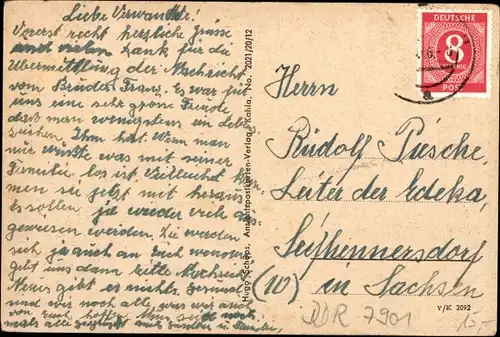 Liebe Verwandte!
Vorerst recht herzliche Grüsse
und vielen Dank für die
Übermittlung der Nachricht
vom Bruder Franz. Es war für
uns eine sehr grosse Freude
dass man wenigstens ein
Ihm hat. Wenn man
nur wüsste was mit seiner
Familie los ist. Vielleicht
men sie jetzt mit heraus
Es sollen ja wieder viel
gewiesen werden. Sie werden
sich ja auch an Euch wenden
gebt uns dann bitte Nachricht
Neues gibt es nichts. Gesund
sind wir noch alle, was wir auch
von Euch hoffen
Hugo Schops, Ansichtspostkarten-Verlag, Kahla, No. 2021/20/12
DEUTSCHE
8
PFENNIG
POST
Herrn
Rudolf Piesche,
Leiter der Edeka,
Seifhennersdorf
(10) in Sachsen
V/K 2092
RDR 7901
15,-